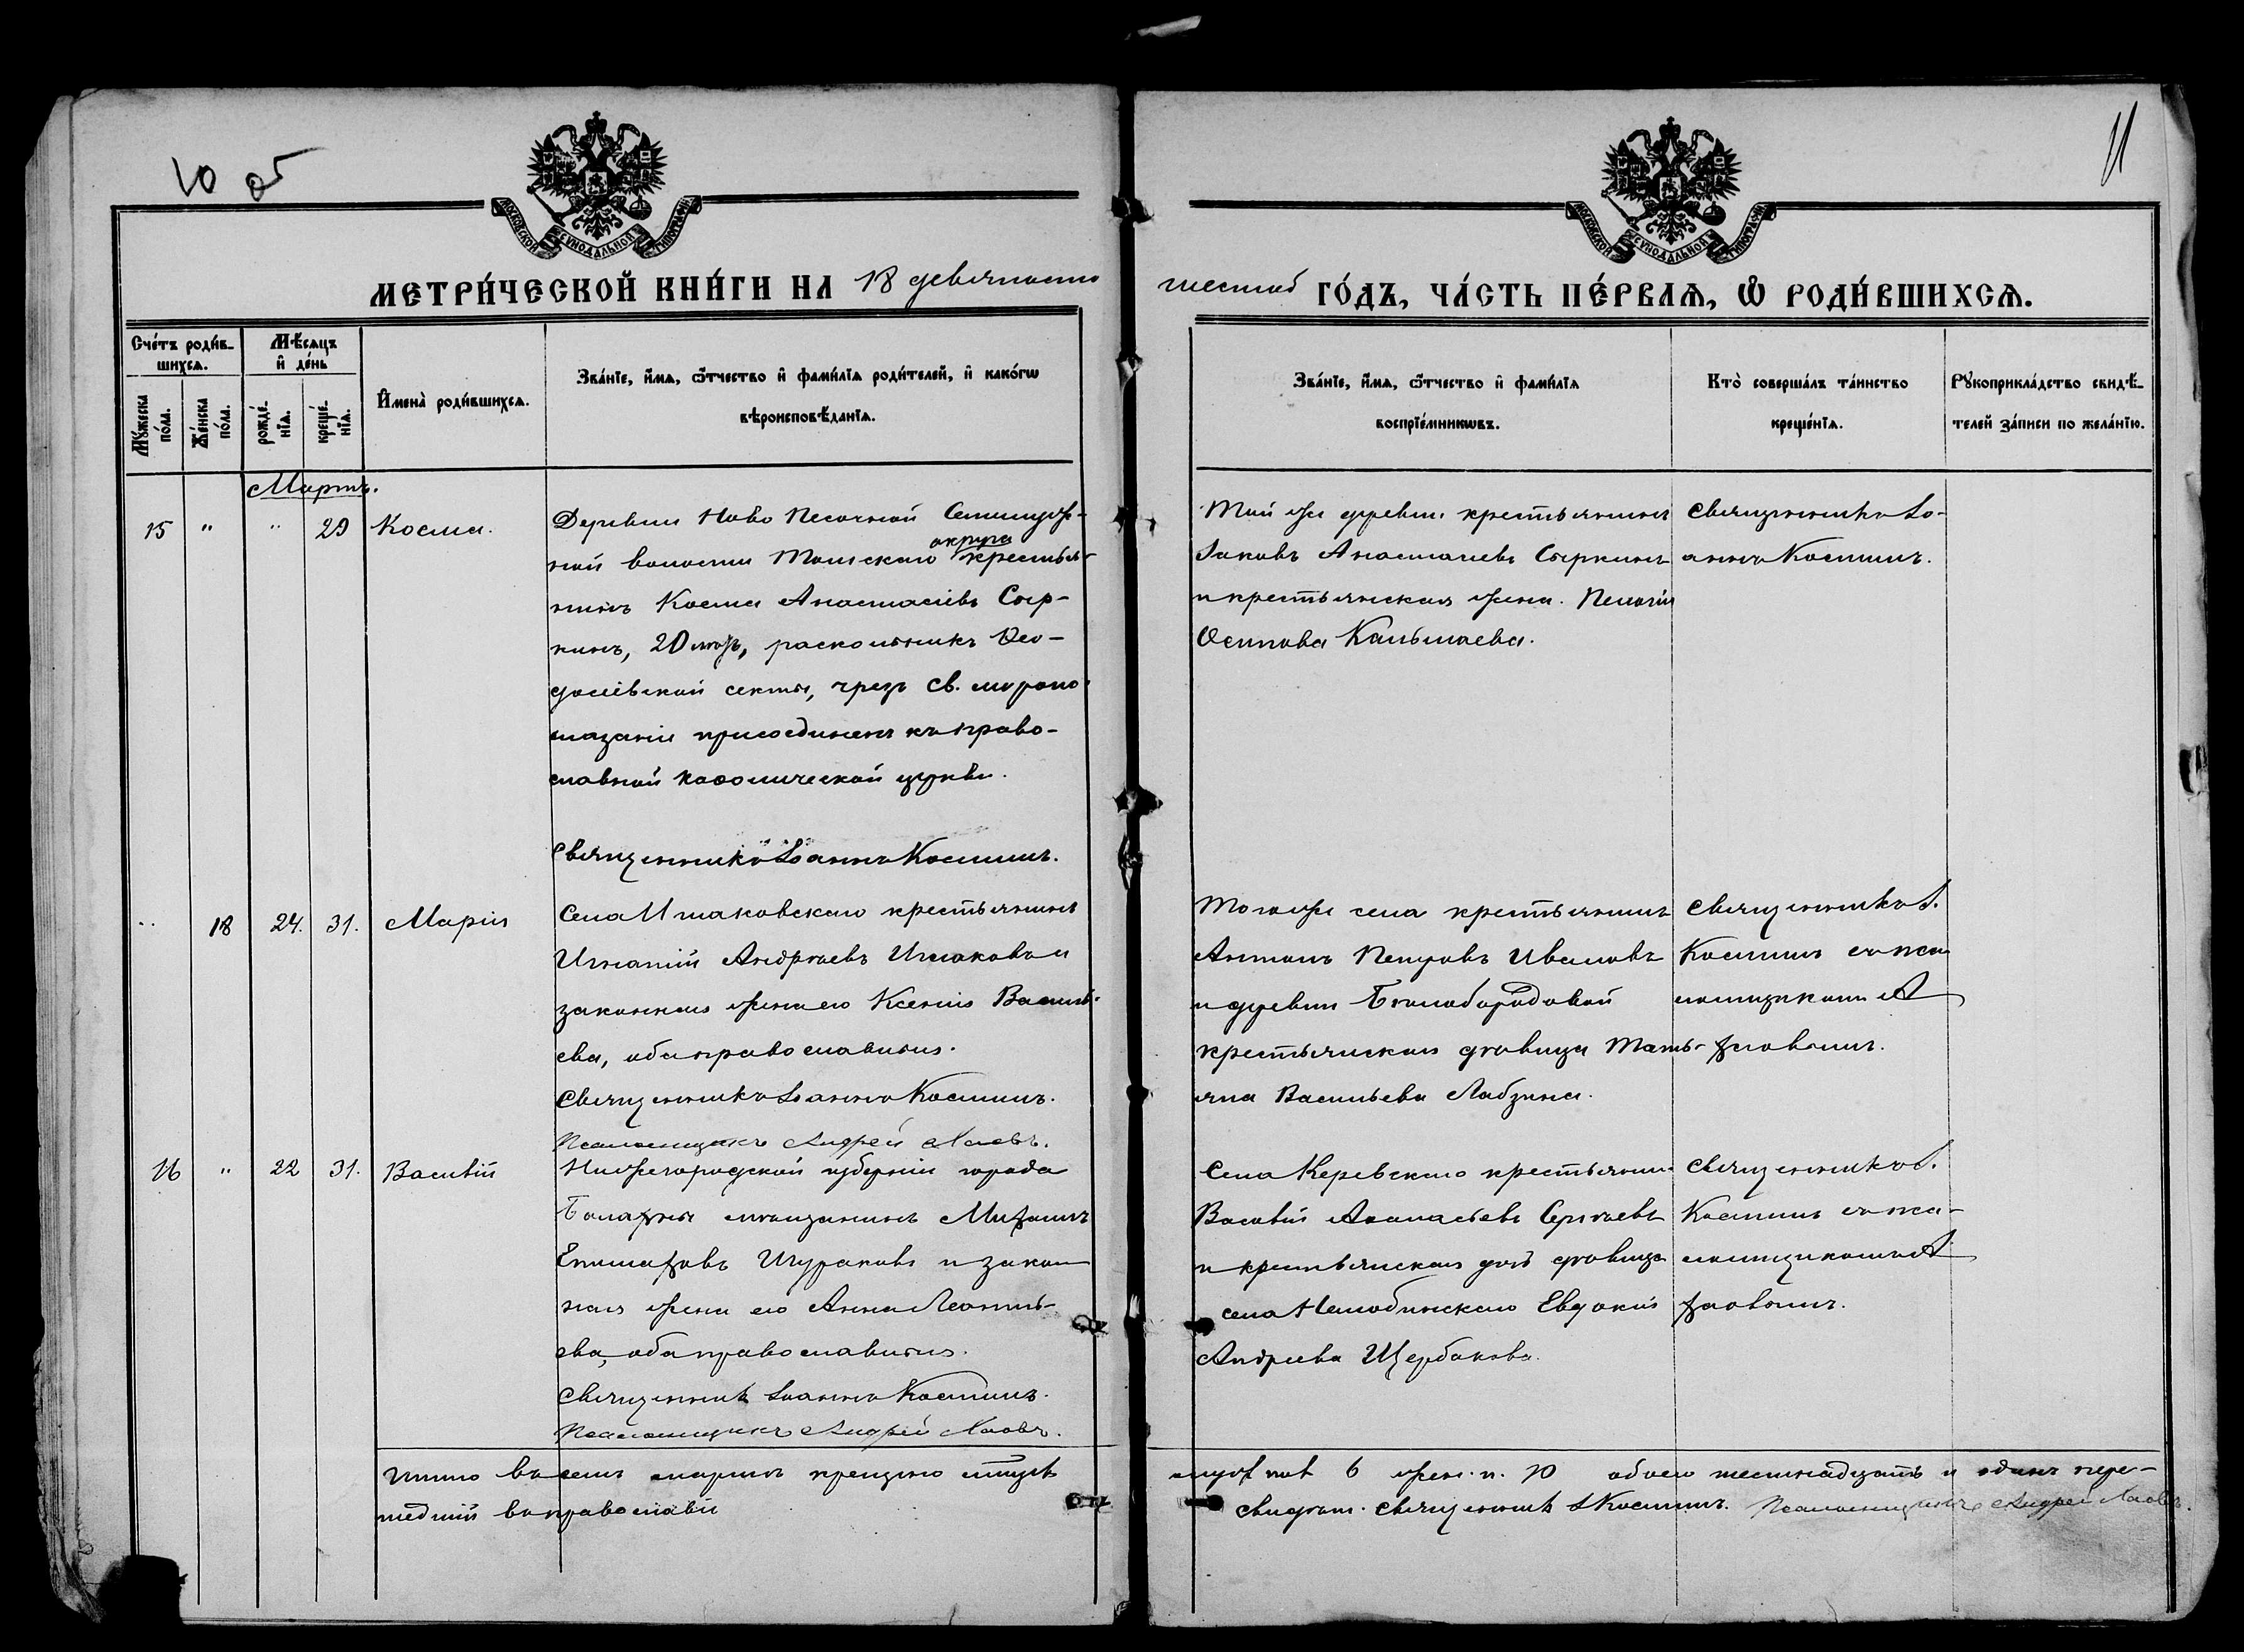 10 об
11
МОСКОВСКОЙ СѴНОДАЛЬНОЙ ТИПОГРАФІИ
МОСКОВСКОЙ СѴНОДАЛЬНОЙ ТИПОГРАФІИ
МЕТРИ́ЧЕСКОЙ КНИ́ГИ НА 18 девяносто
шестой ГО́ДЪ, ЧА́СТЬ ПЕ́РВАѦ, Ѡ РОДИ́ВШИХСѦ.
Сче́тъ роди́в-
шихсѧ.
Мꙋ́жеска по́ла.
Же́нска по́ла.
Мѣ́сѧцъ
и҆ де́нь
рожде́-нїѧ.
креще́-нїѧ.
И҆мена̀ роди́вшихсѧ.
Зва́нїе, и҆́мѧ, ѻ҆́тчество и҆ фами́лїѧ роди́телей, и҆ како́гѡ
вѣроисповѣ́данїѧ.
Зва́нїе, и҆́мѧ, ѻ҆́тчество и҆ фами́лїѧ
воспрїе́мникѡвъ.
Кто̀ соверша́лъ та́инство
креще́нїѧ.
Рꙋкоприкла́дство свидѣ́-
телей за́писи по жела́нїю.
Мартъ.
15 " " 29 Косма.
Деревни Ново Песочной Семилуж-
ной волости Томскаго округа крестья-
нинъ Косма Анастасіевъ Сыр-
кинъ, 20 лѣтъ, раскольникъ Ѳео-
досіевской секты, чрезъ св. муропо-
мазаніе присоединенъ къ право-
славной каѳолической церкви.
Священникъ Іоаннъ Костинъ.
Той же деревни крестьянинъ
Іаковъ Анастасіевъ Сыркинъ
и крестьянская жена Пелагія
Осипова
Священникъ Іо-
аннъ Костинъ.
" 18 24. 31. Марія
Села Ишаковскаго крестьянинъ
Игнатій Андреевъ Ишаковъ и
законная жена его Ксенія Василь-
ева, оба православные.
Священникъ Іоаннъ Костинъ.
Псаломщикъ Андрей
Того же села крестьянинъ
Антонъ Петровъ Ивановъ
и деревни Бѣлобородовой
крестьянская дѣвица Тать-
яна Васильева Лабзина.
Священникъ І.
Костинъ съ пса-
ломщикомъ А
16 " 22 31. Василій
Нижегородской губерніи города
Балахны мѣщанинъ Михаилъ
Епимаховъ Шураковъ и закон
ная жена его Анна Леонть-
ева, оба православные.
Священникъ Іоаннъ Костинъ.
Псаломщикъ Андрей
Села Керевскаго крестьянинъ
Василій Аѳанасьевъ Сергѣевъ
и крестьянская дочь дѣвица
села Нелюбинскаго Евдокія
Андреева Щербакова.
Священникъ І.
Костинъ съ пса-
ломщикомъ А
Итого въ семъ мартѣ крещено
мужск. 6 жен. п. 10 обоего шестнадцать и одинъ пере-
шедшій въ православіе
Свидѣт. Священникъ І Костинъ. Псаломщикъ Андрей